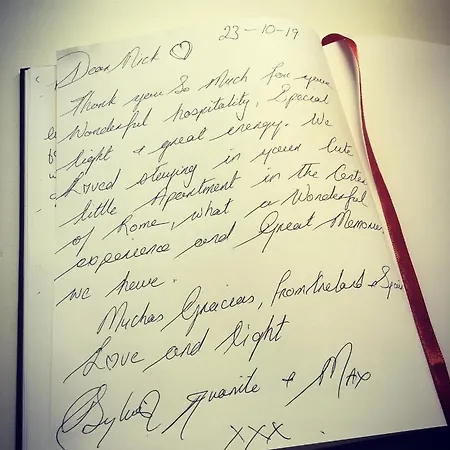 23-10-19
Dear Mick ♡
Thank you so Much for your
Wonderful hospitality, Special
light & great energy. We
Loved staying in your cute
little Apartment in the Center
of Rome, what a Wonderful
experience and Great Memories
we have.
Muchas Gracias, from Ireland & Spain
Love and light
& Max
xxx